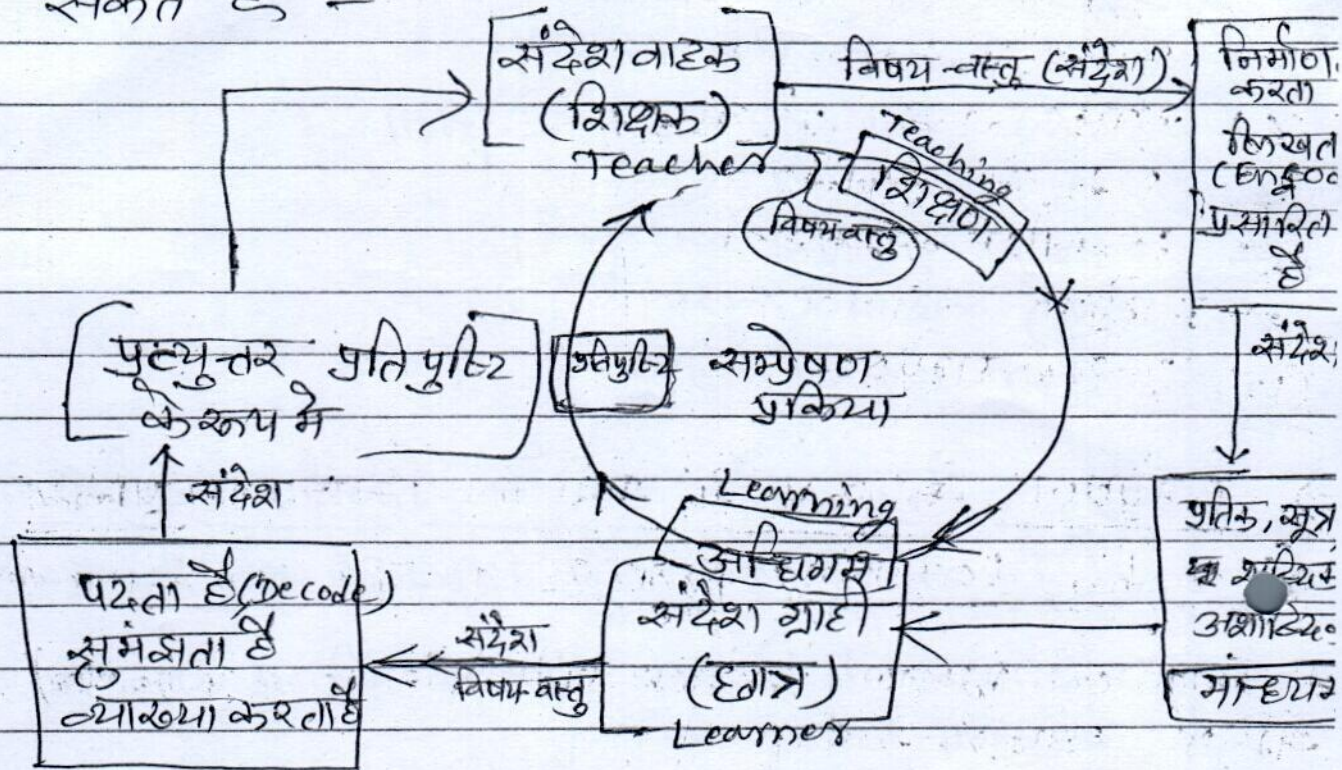 संदेश वाहक
(शिक्षक)
Teacher
विषय-वस्तु (संदेश)
निर्माण
करता
लिखत
(Encod
प्रसारित
है
Teaching
शिक्षण
विषय वस्तु
संदेश
प्रत्युत्तर प्रतिपुष्टि
के रूप मे
प्रतिपुष्टि
सम्प्रेषण
प्रक्रिया
संदेश
Learning
अधिगम
संदेश ग्राही
(छात्र)
Learner
प्रतिक, सूत्र
शाब्दिक
अशाब्दिक
माध्यम
पढता है (Decode)
समंझता है
व्याख्या करता है
संदेश
विषय वस्तु